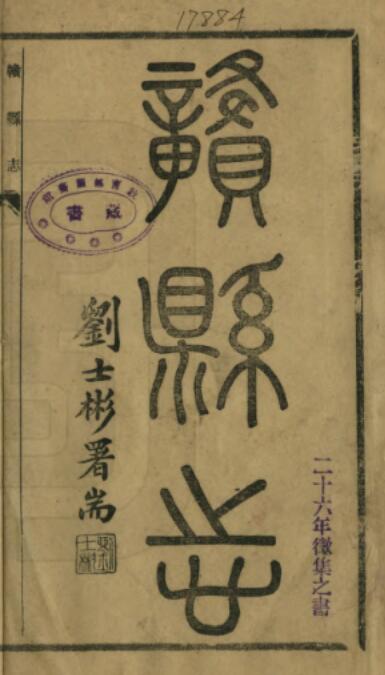 17884
二十六年徵集之書
贛縣志
劉士彬署耑
藏書
贛縣志